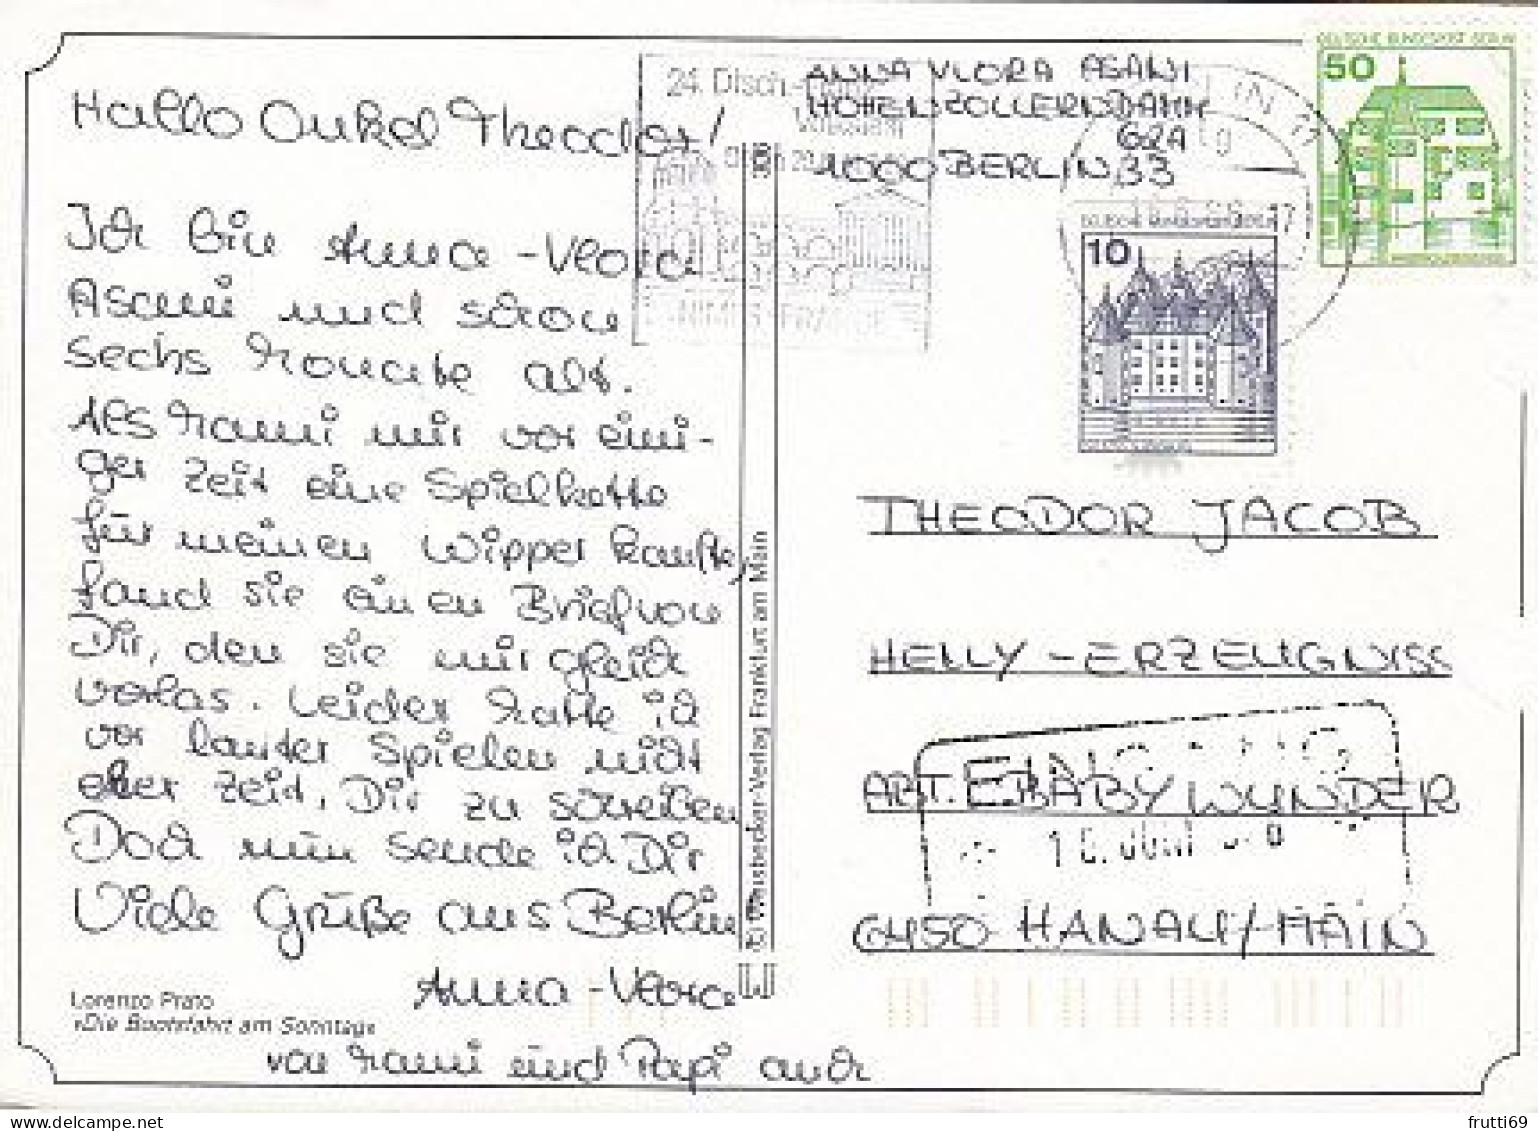 Hallo Onkel Theodor!
Ich bin Anna-Vlora
Asani und schon
sechs Monate alt.
Als Mami mir vor eini-
ger Zeit eine Spielkette
für meinen Wipper kaufte,
fand sie einen Brief von
Dir, den sie mir gleich
vorlas. Leider hatte ich
vor lauter Spielen nicht
eher Zeit, Dir zu schreiben
Doch nun sende ich Dir
Viele Grüße aus Berlin
Anna-Vlora
von Mami und Papi auch
Lorenzo Prato
»Die Bootsfahrt am Sonntag«
Verlag Frankfurt am Main
24. Dtsch.-
NIMES-FRANCE
ANNA VLORA ASANI
HOHENZOLLERNDAMM
62A
1000 BERLIN 33
DEUTSCHE BUNDESPOST BERLIN
50
10
THEODOR JACOB
HELLY-ERZEUGNISS
ABT. BABYWUNDER
EINGANG
6450 HANAU/MAIN
frutti69